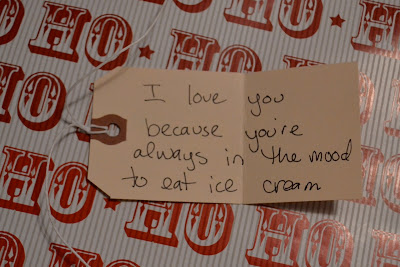 I love you
because you're
always in the mood
to eat ice cream
HO HO HO
HO HO
HO
HO
HO
HO HO
HO